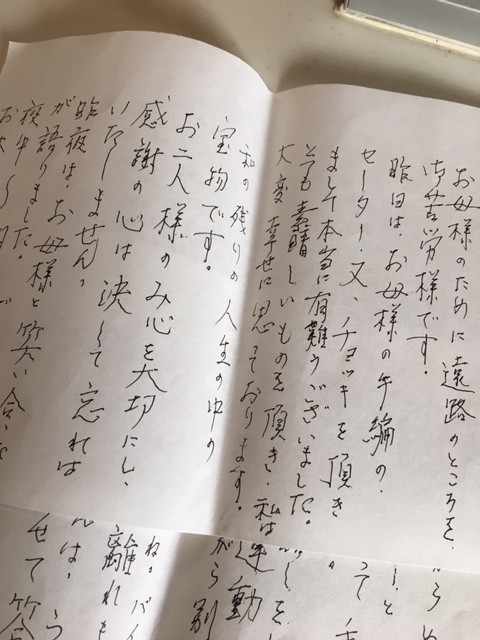 お母様のために遠路のところを、
御苦労様です。
昨日は、お母様の手編の、
セーター・又、チョッキを頂き
まして本当に有難うございました。
とても素晴しいものを頂き、私は
大変幸せに思っております。
私の残りの人生の中の
宝物です。
お二人様のみ心を大切にし、
感謝の心は決して忘れは
いたしません。
昨夜は、お母様と笑い合い
が語りました。
夜中
運動
がら別
ね。バイ
離れ
んは、う
せて